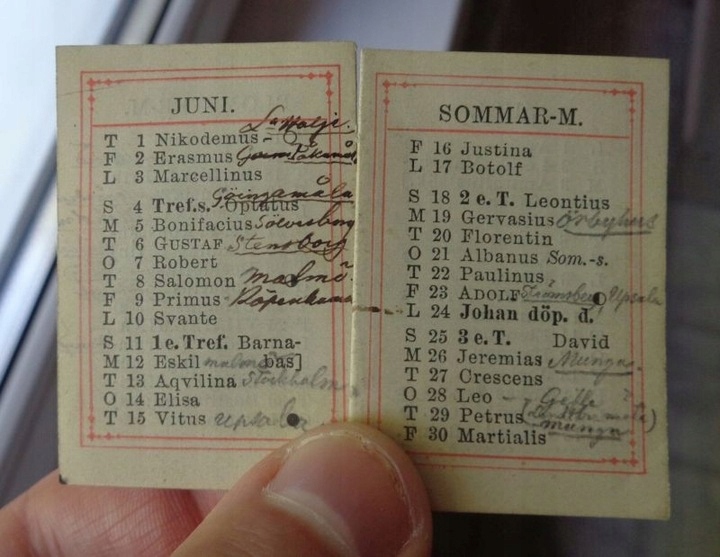 JUNI.
T 1 Nikodemus
F 2 Erasmus
L 3 Marcellinus
Göingamåla
S 4 Tref.s. Optatus
M 5 Bonifacius Sölvesborg
T 6 GUSTAF Stensborg
O 7 Robert
T 8 Salomon malmö
F 9 Primus Köpenhamn
L 10 Svante
S 11 1 e. Tref. Barna-
M 12 Eskil malmö bas]
T 13 Aqvilina Stockholm
O 14 Elisa
T 15 Vitus Upsala
SOMMAR-M.
F 16 Justina
L 17 Botolf
S 18 2 e. T. Leontius
M 19 Gervasius Örbyhus
T 20 Florentin
O 21 Albanus Som.-s.
T 22 Paulinus
F 23 ADOLF Upsala
L 24 Johan döp. d.
S 25 3 e. T. David
M 26 Jeremias Munga
T 27 Crescens
O 28 Leo - Gefle ?
T 29 Petrus
munga
F 30 Martialis